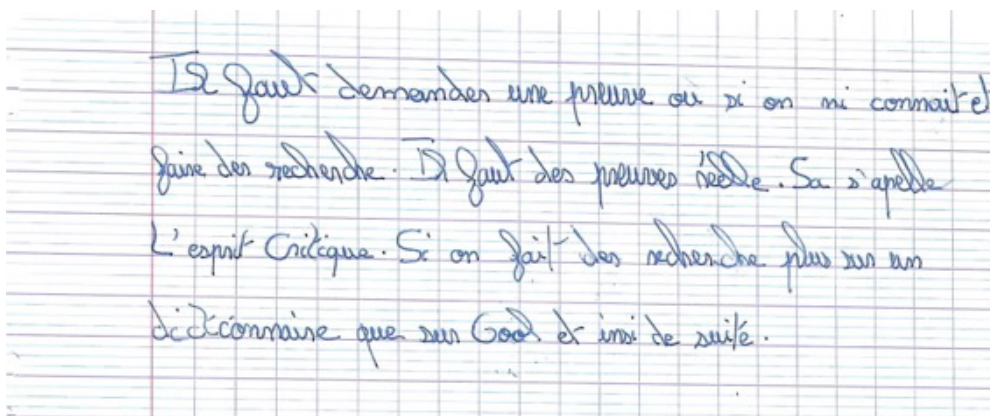 Il faut demander une preuve ou si on ni connait et
faire des recherche. Il faut des preuves réelle. Sa s'apelle
L'esprit Critique. Si on fait des recherche plus sur un
dictionnaire que sur Gool et insi de suite.